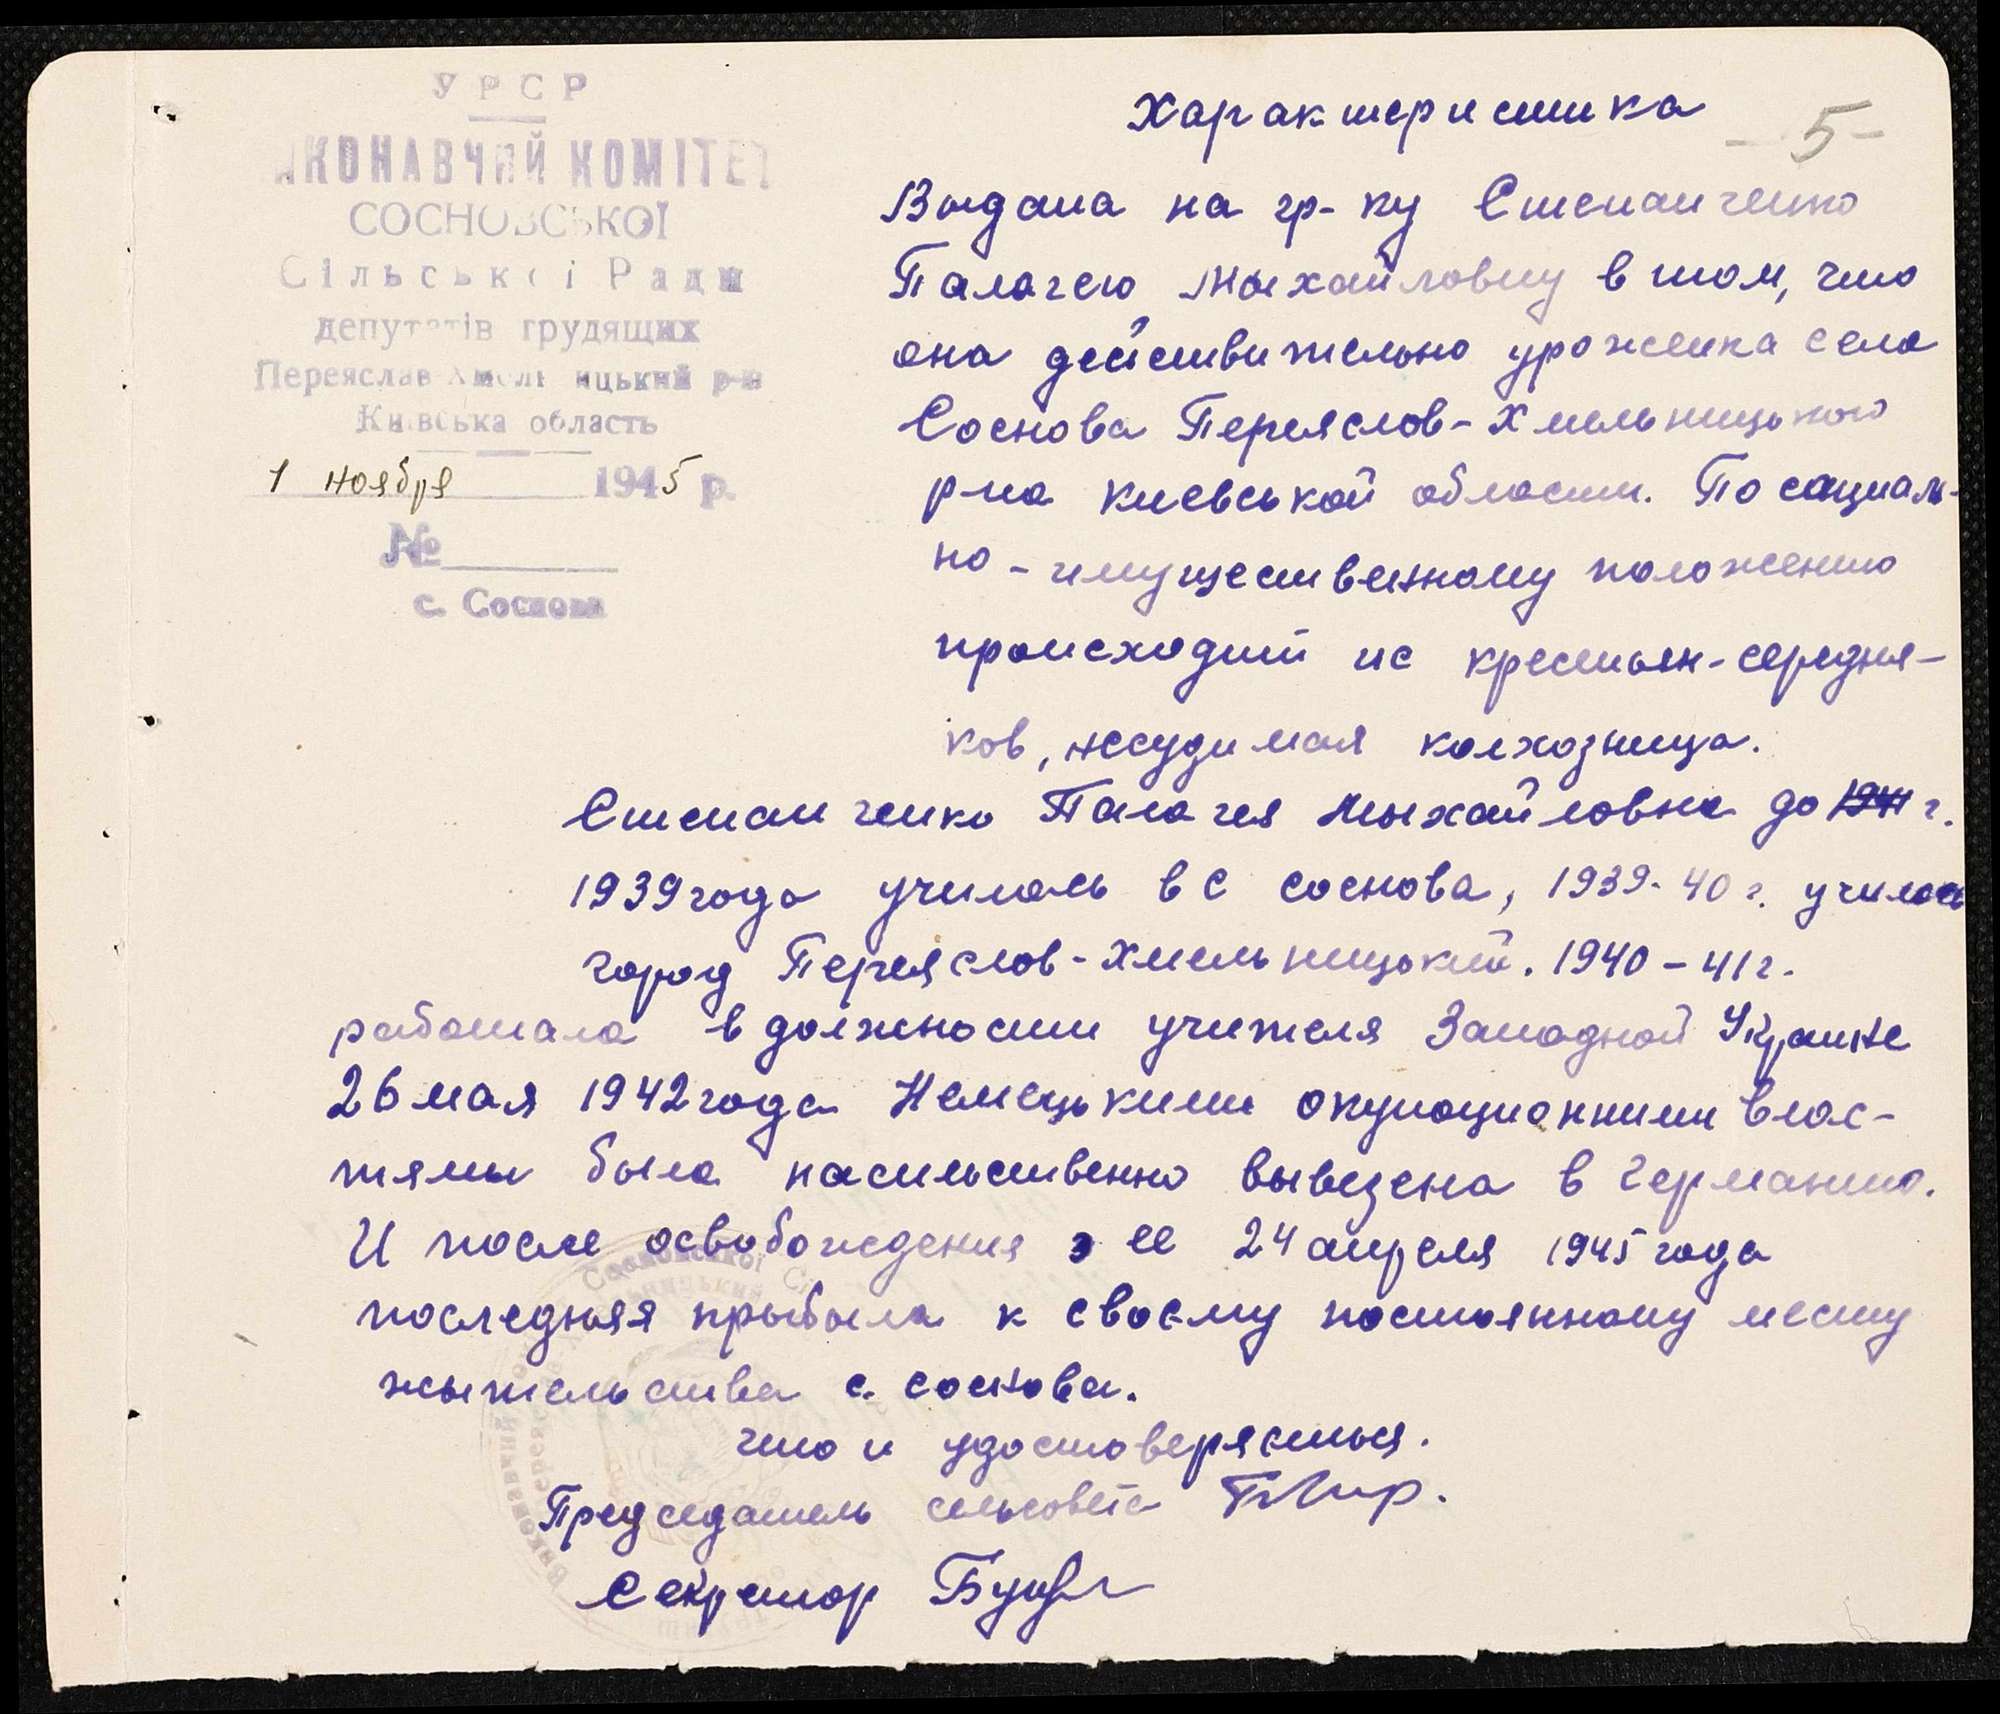 УРСР
ИКОНАВЧИЙ КОМІТЕТ
СОСНОВСЬКОЇ
Сільської Ради
депутатів трудящих
Переяслав-Хмельницький р-н
Київська область
1 ноября 1945 р.
№
с. Соснова
Характеристика
- 5 -
Выдана на гр-ку Степанченко
Палагею Мыхайловну в том, что
она действительно уроженка села
Соснова Переяслов-Хмельницького
р-на Киевськой области. По социаль-
но-имущественному положению
происходит ис крестьян-середня-
ков, несудимая колхозница.
Степанченко Палагея Мыхайловна до 1941 г.
1939 года училась в с Соснова, 1939-40 г. училась
город Переяслов-Хмельницький. 1940-41 г.
работала в должности учителя Западной Украине
26 мая 1942 года Немецькими окупационними влас-
тямы была насильственно вывезена в Германию.
И после освобождения ее 24 апреля 1945 года
последняя прыбыла к своему постоянному месту
жытельства с. Соснова.
что и удостоверяеться.
Председатель сельсовета
Секретор